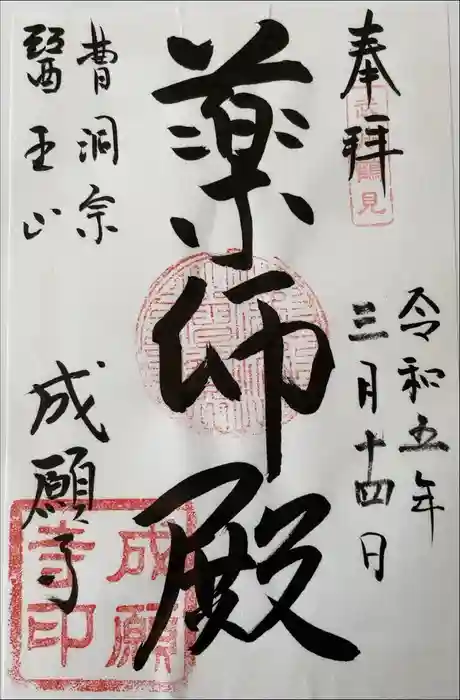 奉拝
令和五年
三月十四日
薬師殿
曹洞宗
醫王山
成願寺
鶴見
成願
寺印